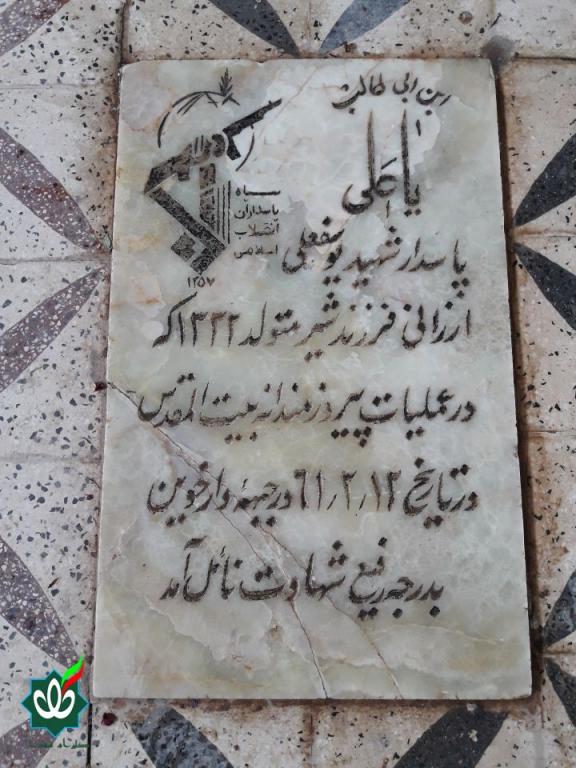 ابن ابی طالب
یا علی
سپاه
پاسداران
انقلاب
اسلامی
۱۳۵۷
پاسدار شهید یوسفعلی
ارزانی فرزند شیر متولد ۱۳۳۲ که
در عملیات پیروزمندانه بیت المقدس
در تاریخ ۶۱٫۲٫۱۲ در جبهه دارخوین
بدرجه رفیع شهادت نائل آمد